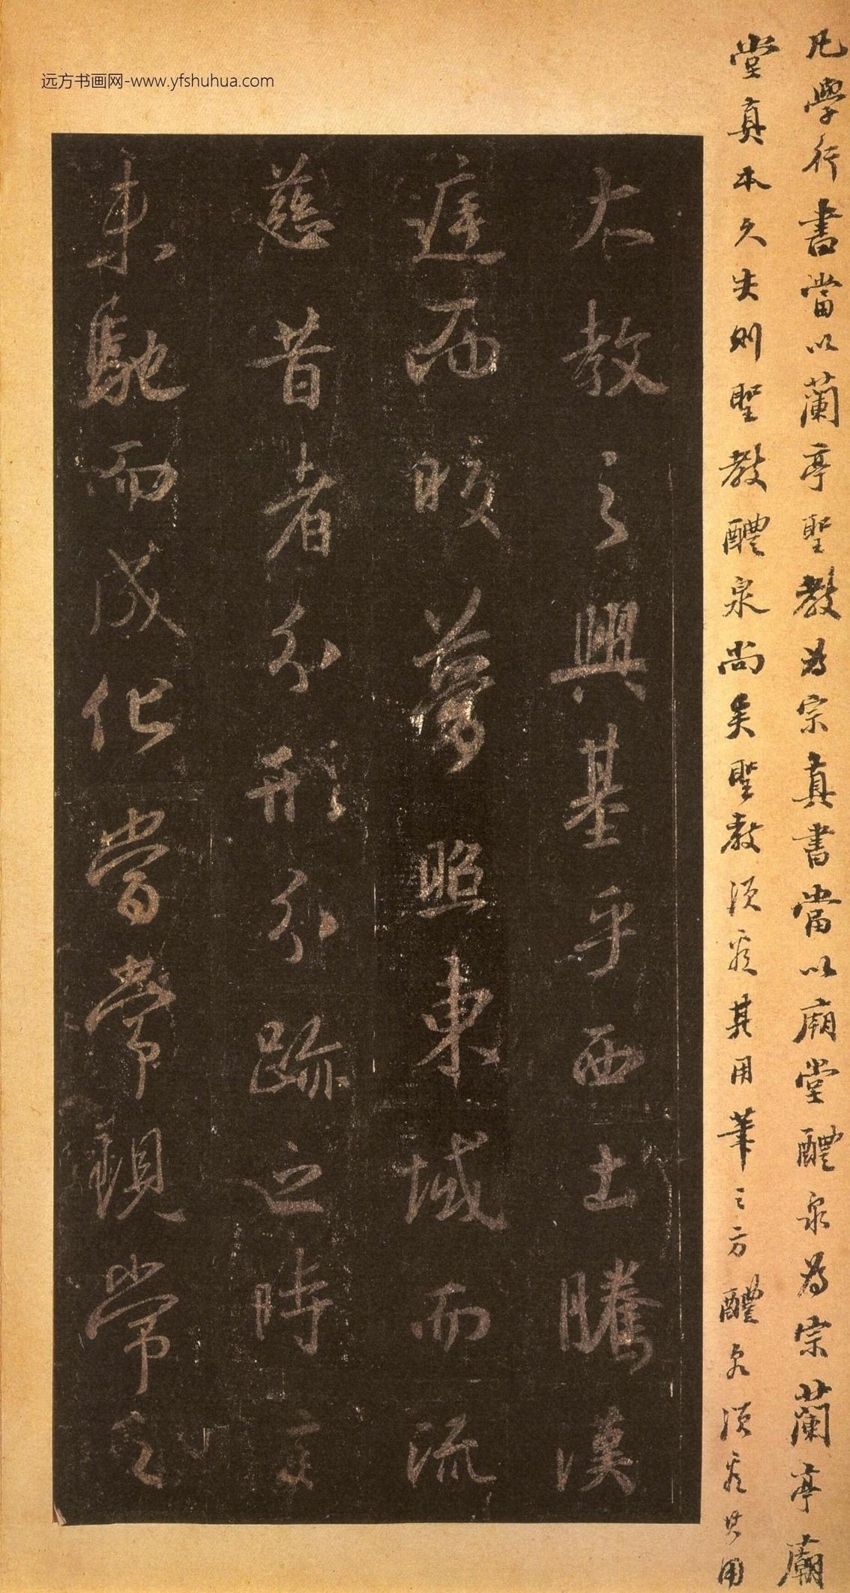 远方书画网-www.yfshuhua.com
凡學行書當以蘭亭聖教為宗真書當以廟堂醴泉為宗蘭亭廟
堂真本久失則聖教醴泉尚矣聖教須看其用筆之方醴泉須看其用
大教之興基乎西土騰漢
庭而皎夢照東域而流
慈昔者分形分跡之時言
未馳而成化當常現常之